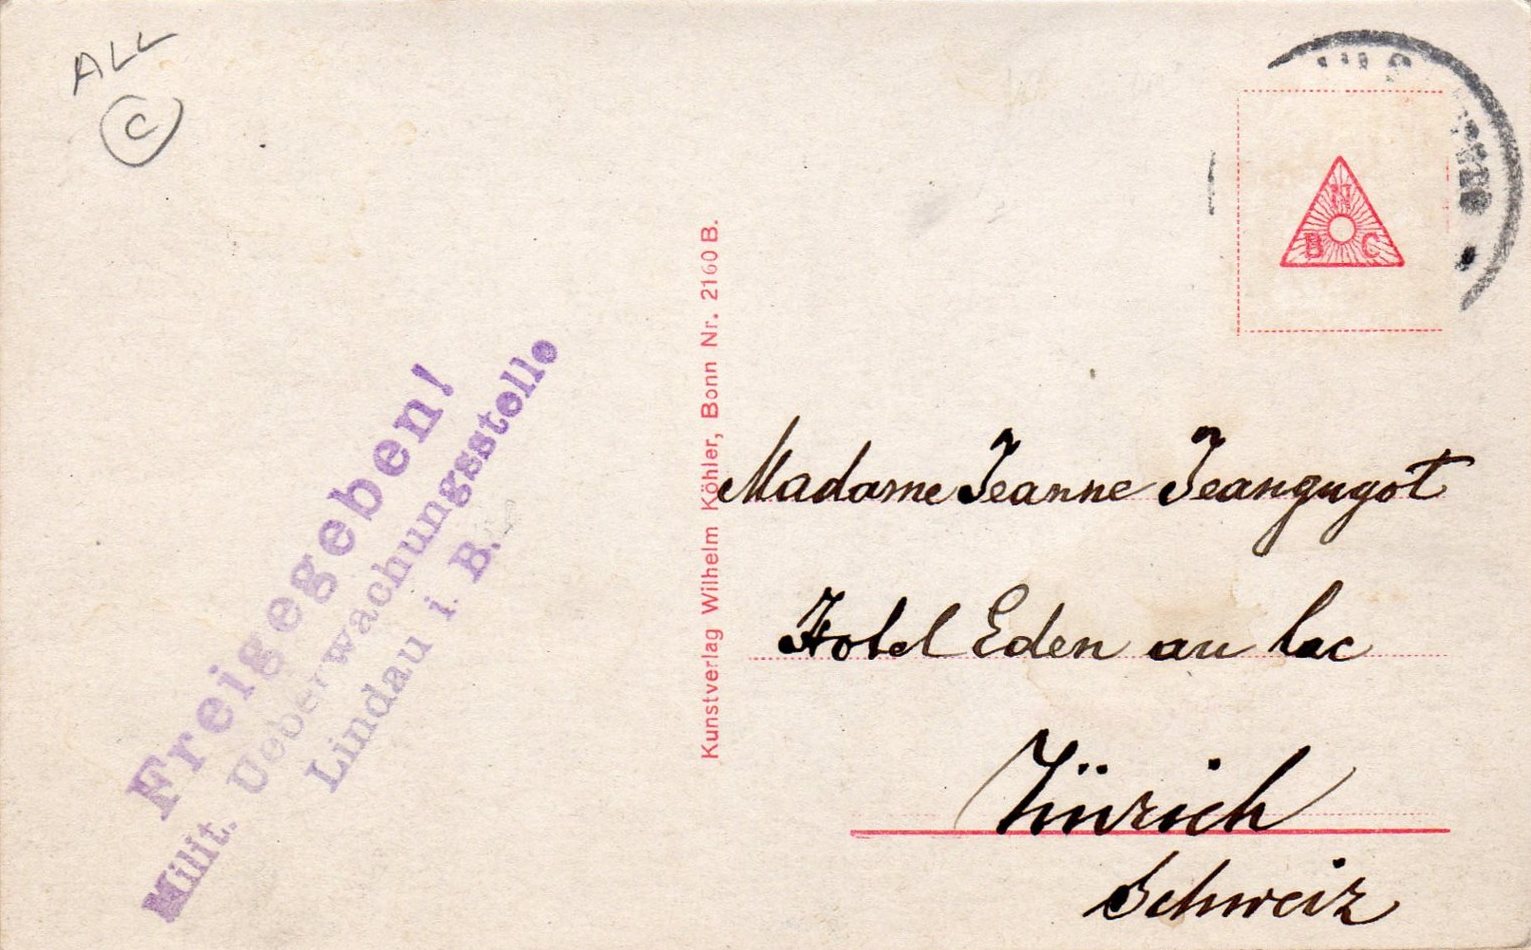 ALL
C
N
B C
Freigegeben!
Milit. Ueberwachungsstelle
Lindau i. B.
Kunstverlag Wilhelm Köhler, Bonn Nr. 2160 B.
Madame Jeanne Jeanguyot
Hotel Eden au lac
Zürich
Schweiz